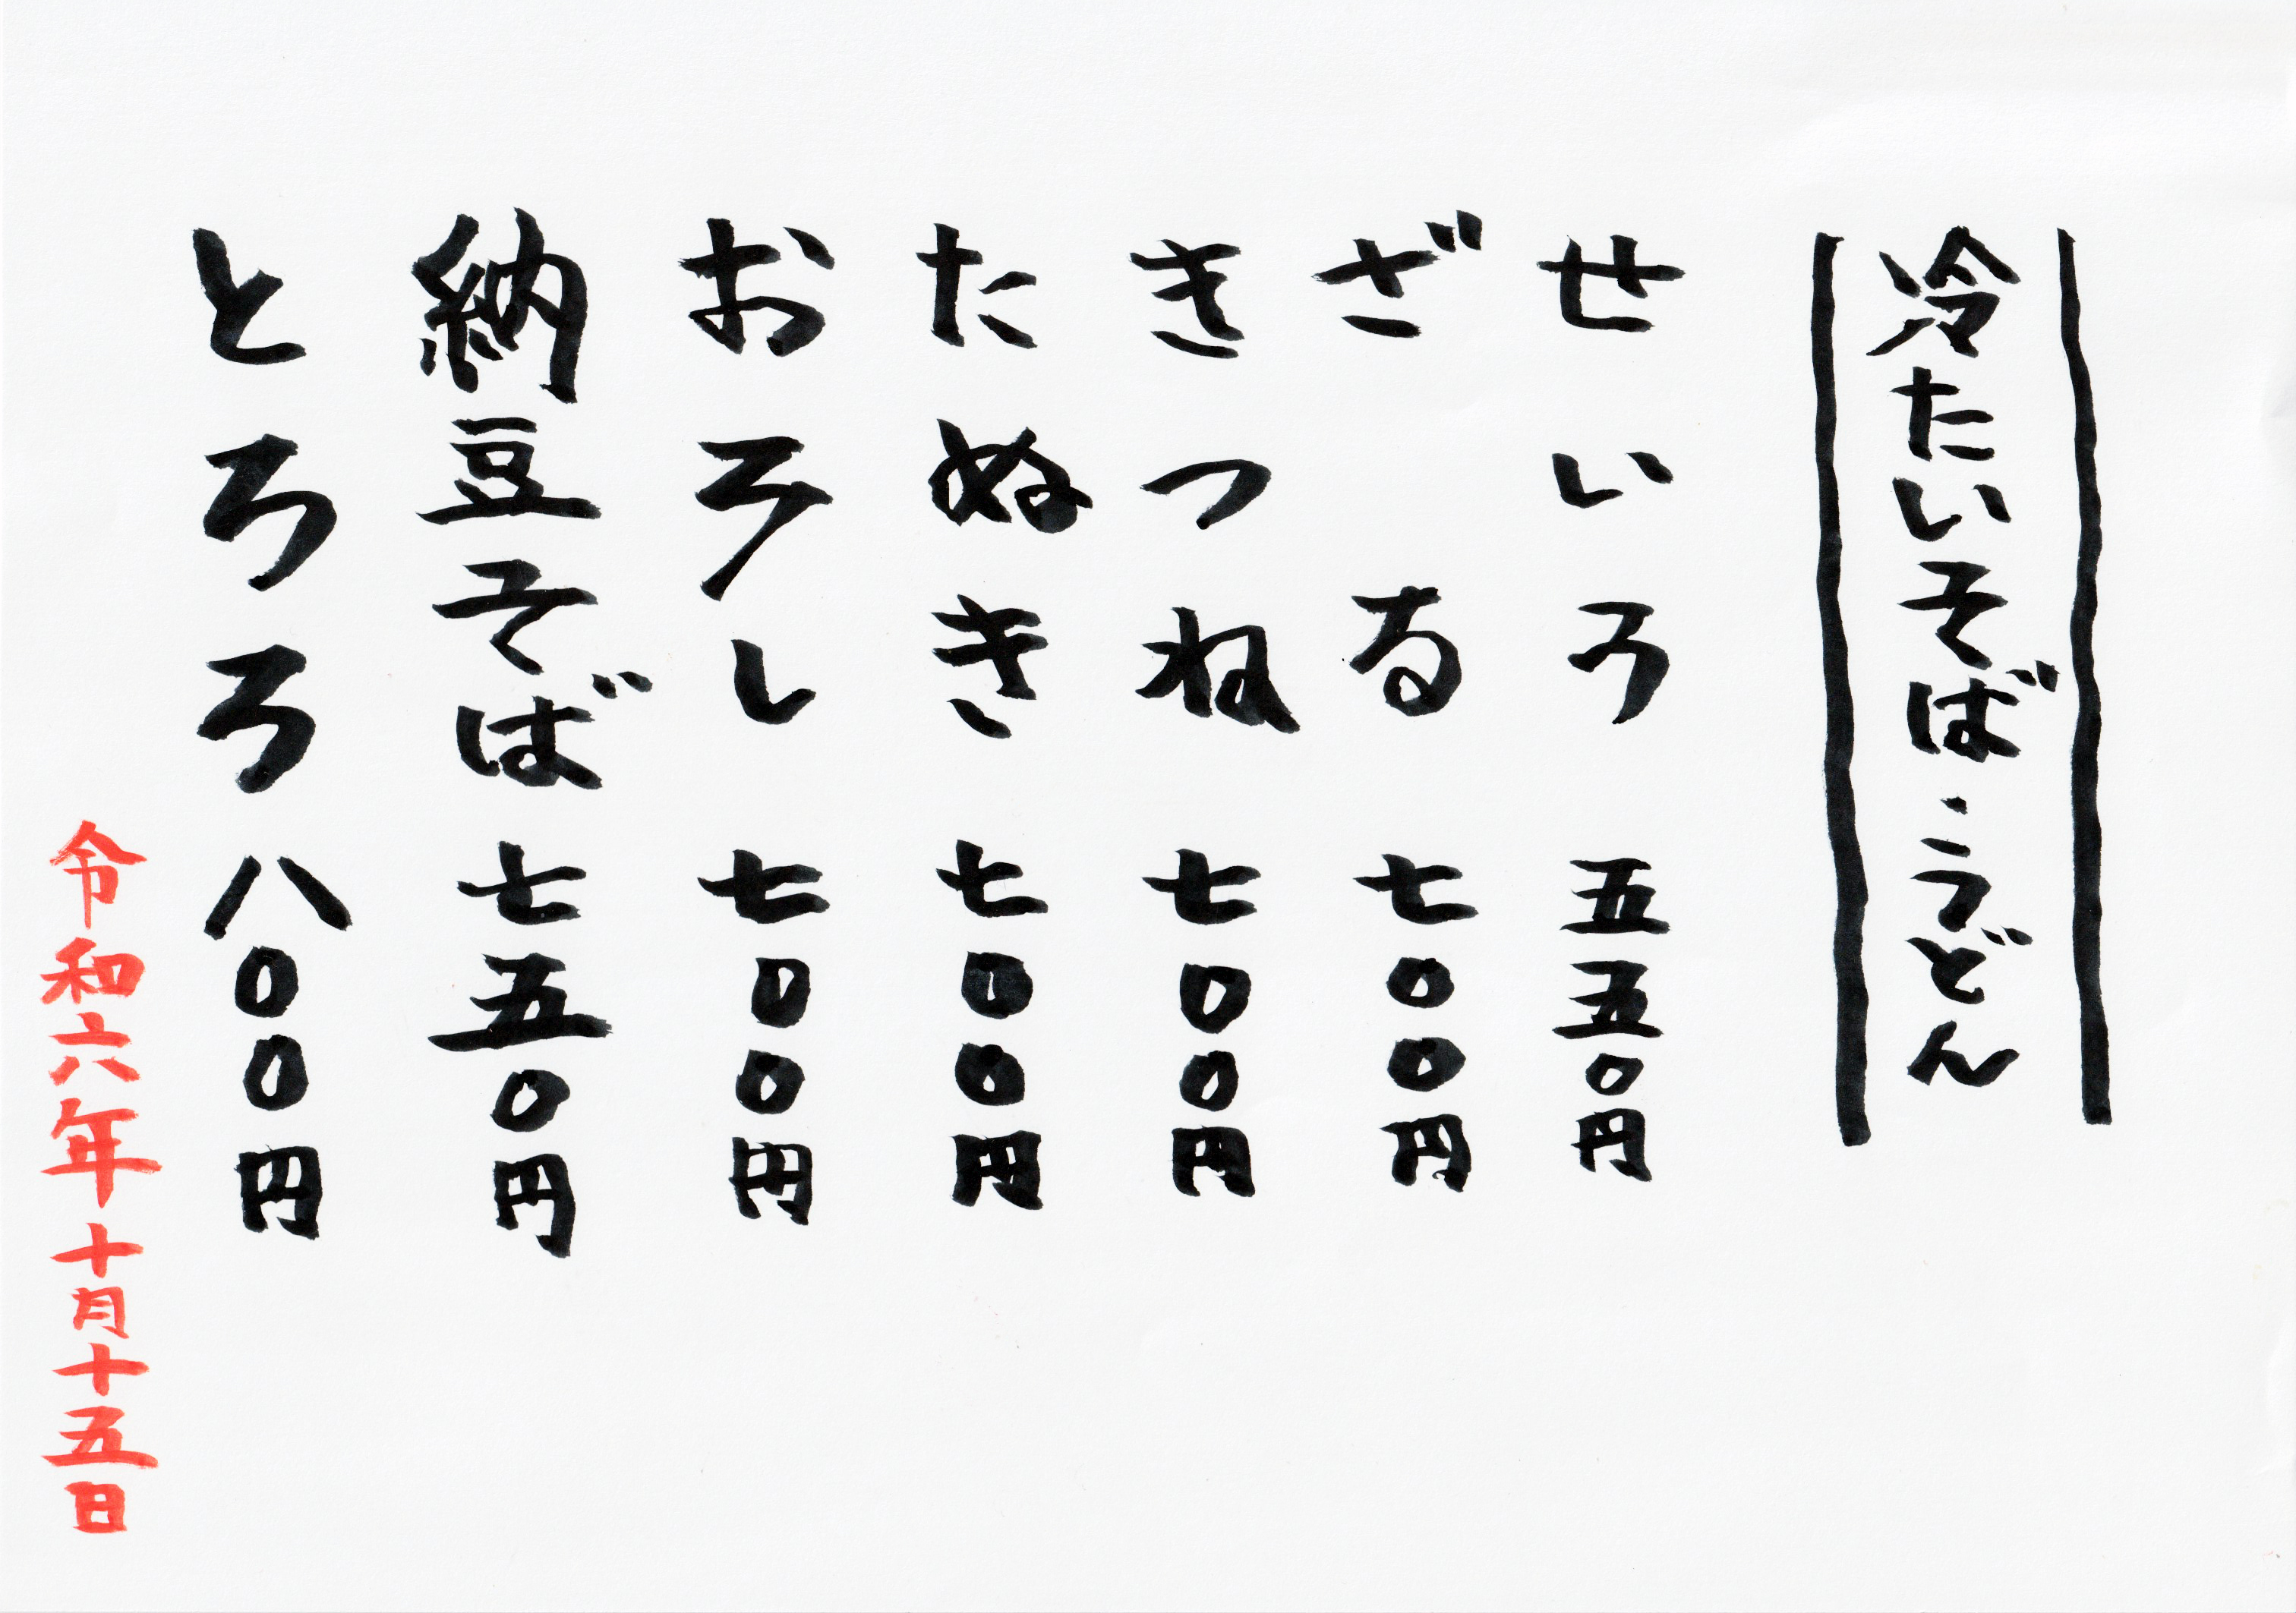 冷たいそば・うどん
せいろ 五五〇円
ざる 七〇〇円
きつね 七〇〇円
たぬき 七〇〇円
おろし 七〇〇円
納豆そば 七五〇円
とろろ 八〇〇円
令和六年十月十五日